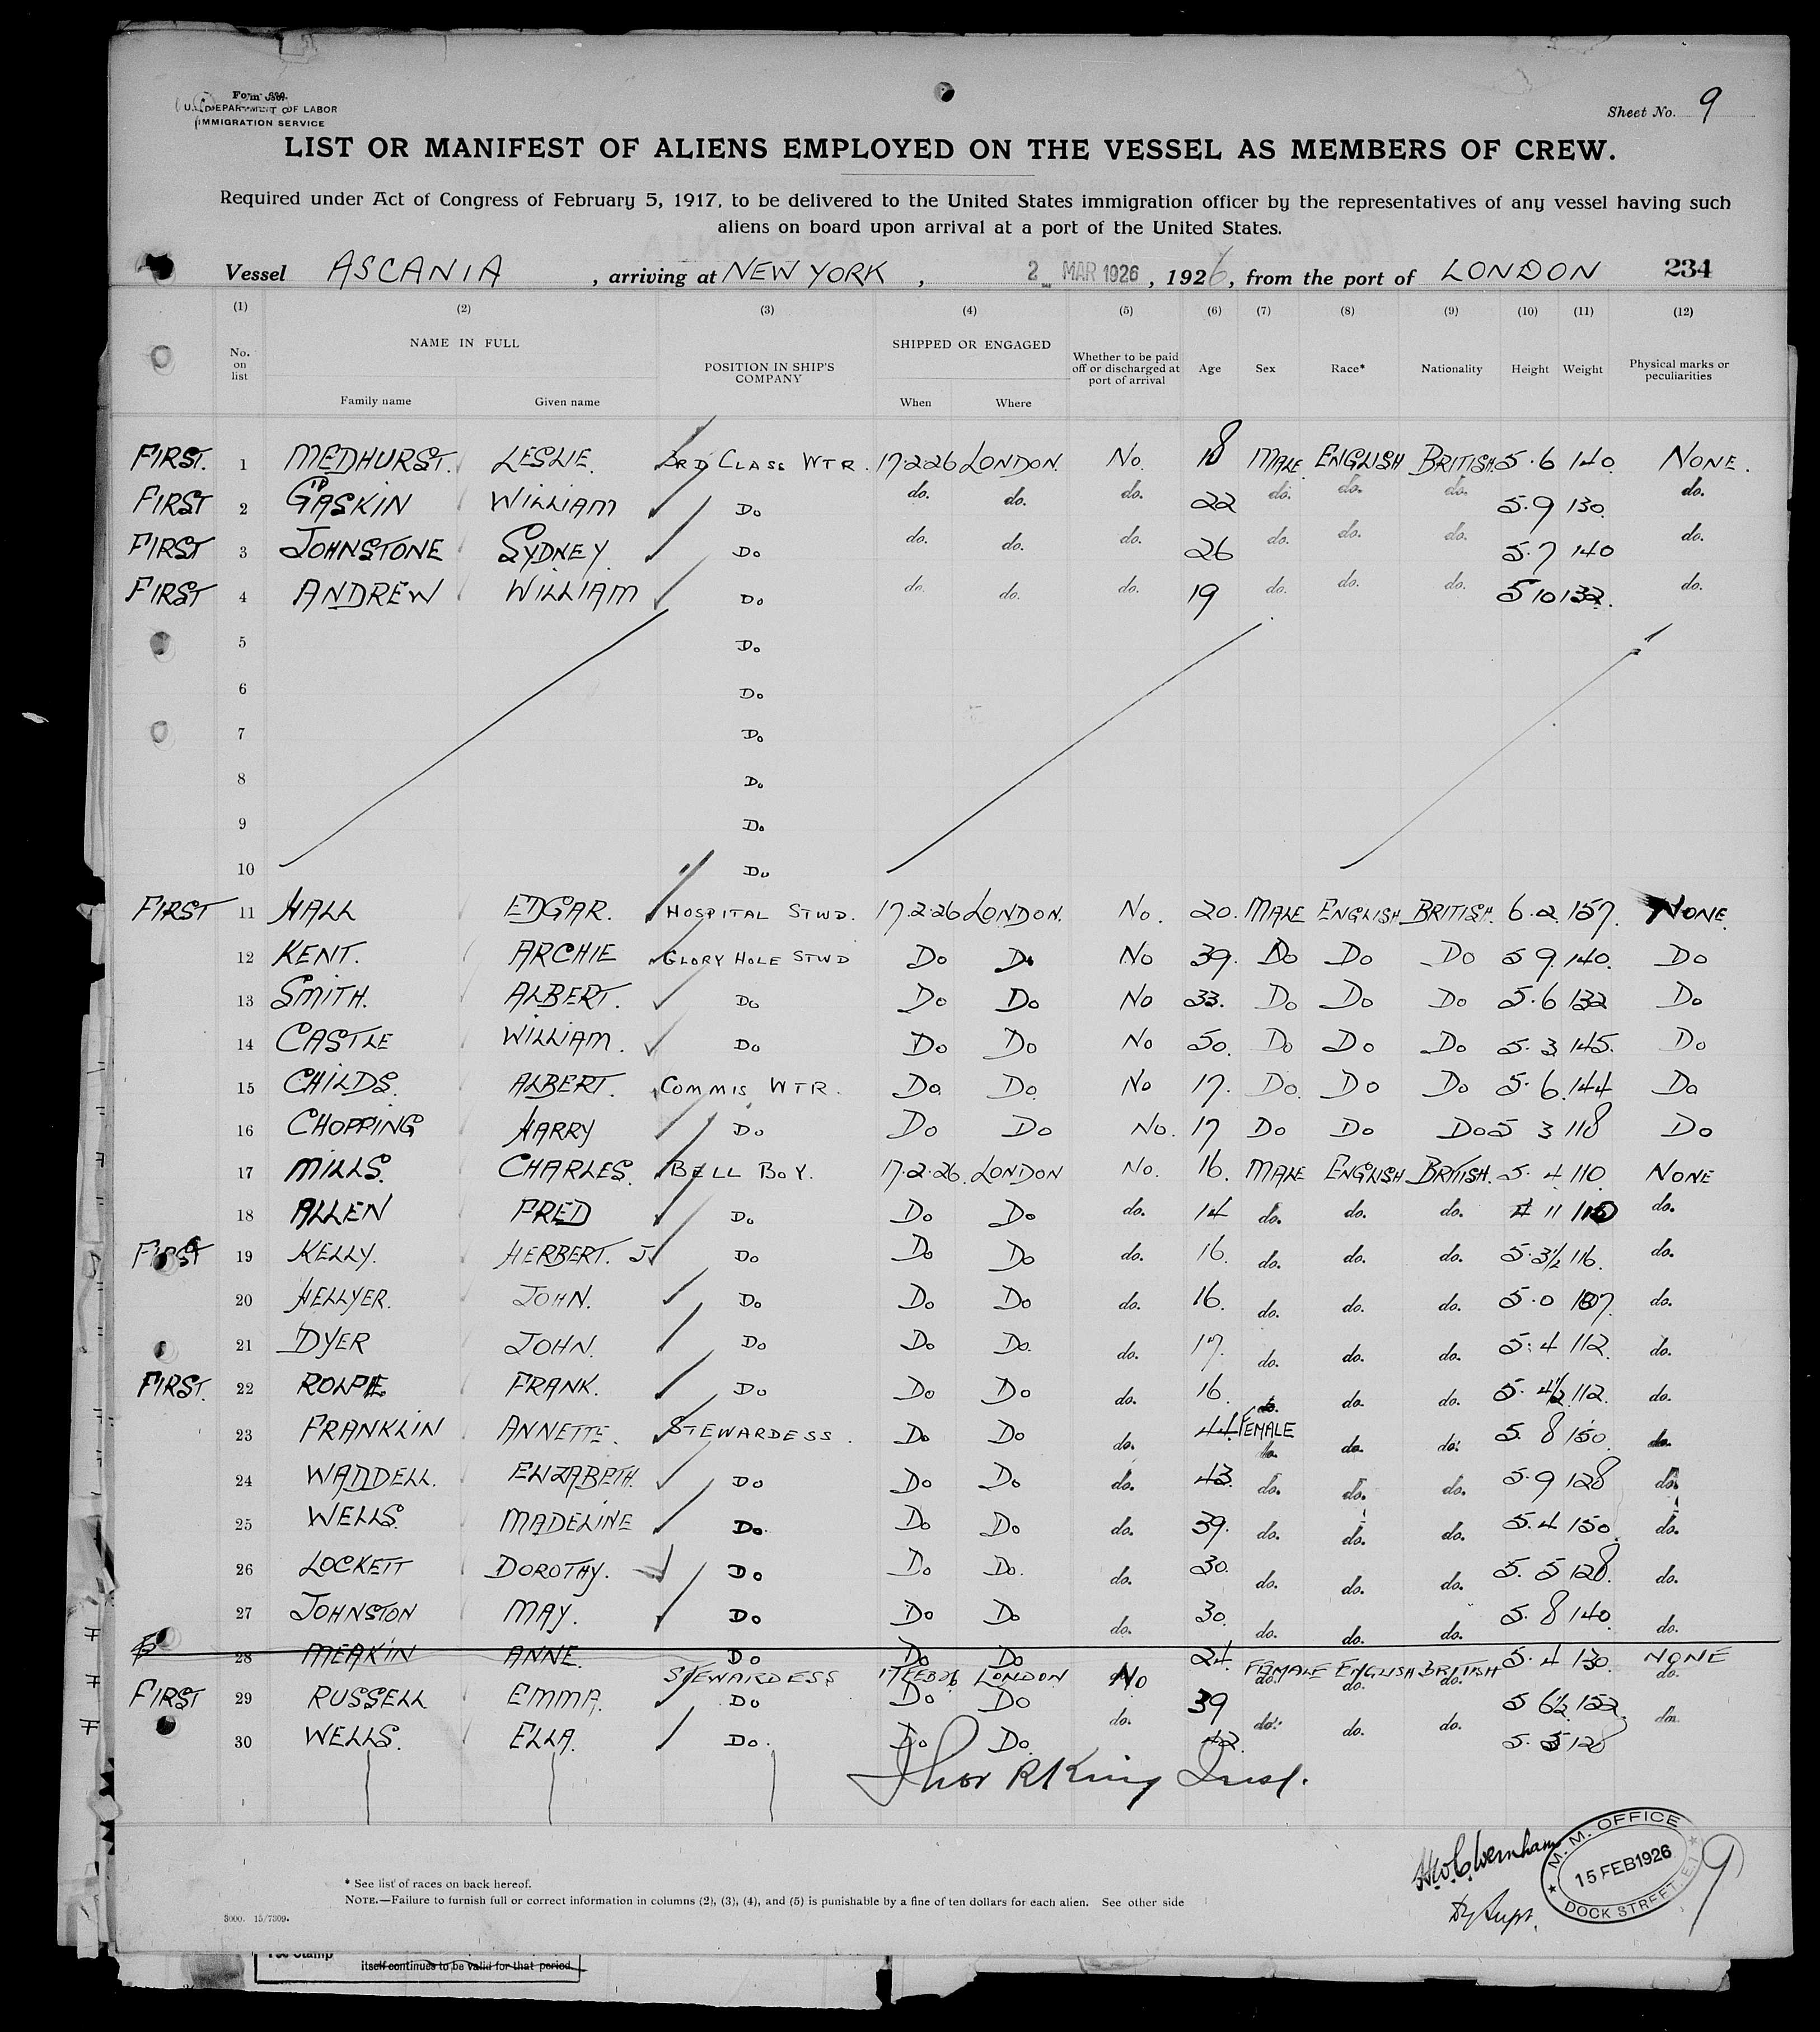 Form 680.
U.S. DEPARTMENT OF LABOR
IMMIGRATION SERVICE
Sheet No. 9
LIST OR MANIFEST OF ALIENS EMPLOYED ON THE VESSEL AS MEMBERS OF CREW.
Required under Act of Congress of February 5, 1917, to be delivered to the United States immigration officer by the representatives of any vessel having such
aliens on board upon arrival at a port of the United States.
Vessel ASCANIA, arriving at NEW YORK, 2 MAR 1926, 1926, from the port of LONDON 234
(1) (2) (3) (4) (5) (6) (7) (8) (9) (10) (11) (12)
No. on list NAME IN FULL POSITION IN SHIP'S COMPANY SHIPPED OR ENGAGED Whether to be paid off or discharged at port of arrival Age Sex Race* Nationality Height Weight Physical marks or peculiarities
Family name Given name When Where
FIRST. 1 MEDHURST. LESLIE. 3RD CLASS WTR. 17.2.26 LONDON. No. 18 MALE ENGLISH BRITISH. 5.6 140. NONE.
FIRST 2 GASKIN WILLIAM Do do. do. do. 22 do. do. do. 5.9 130. do.
FIRST 3 JOHNSTONE SYDNEY. Do do. do. do. 26 do. do. do. 5.7 140 do.
FIRST 4 ANDREW WILLIAM Do do. do. do. 19 do. do. do. 5 10 132. do.
5 Do
6 Do
7 Do
8 Do
9 Do
10 Do
FIRST 11 HALL EDGAR. HOSPITAL STWD. 17.2.26 LONDON. No. 20. MALE ENGLISH BRITISH. 6.2. 157. NONE.
12 KENT. ARCHIE GLORY HOLE STWD Do Do No 39. Do Do Do 5 9. 140. Do
13 SMITH. ALBERT. Do Do Do No 33. Do Do Do 5.6 132 Do
14 CASTLE WILLIAM. Do Do Do No 50. Do Do Do 5.3 145. Do
15 CHILDS. ALBERT. COMMIS WTR. Do Do. No 17. Do. Do Do 5.6. 144 Do
16 CHOPPING HARRY Do Do Do No. 17 Do Do Do 5 3 118 Do
17 MILLS. CHARLES. BELL BOY. 17.2.26. LONDON No. 16. MALE ENGLISH BRITISH. 5.4 110. NONE
18 ALLEN FRED Do Do Do do. 14 do. do. do. 4 11 110 do.
FIRST 19 KELLY. HERBERT. J Do Do Do do. 16. do. do. do. 5.3½ 116. do.
20 HELLYER. JOHN. Do Do Do do. 16. do. do. do. 5.0 107. do.
21 DYER JOHN. Do Do Do. do. 17. do. do. do. 5.4 112. do.
FIRST. 22 ROLPE FRANK. Do Do Do do. 16. do. do. do. 5.4½ 112. do.
23 FRANKLIN ANNETTE. STEWARDESS. Do Do do. 44. FEMALE do. do. do. 5.8 150. do.
24 WADDELL. ELIZABETH. Do Do Do do. 43. do. do. do. 5.9 128 do.
25 WELLS. MADELINE Do. Do Do do. 39. do. do. do. 5.4 150. do.
26 LOCKETT DOROTHY. Do Do Do. do. 30. do. do. do. 5.5 128. do.
27 JOHNSTON MAY. Do Do Do do. 30. do. do. do. 5.8 140. do.
28 MEAKIN ANNE. Do Do Do 24. do. do. do. 5.4 130. do.
STEWARDESS 17 FEB 26 LONDON No FEMALE ENGLISH BRITISH NONE
FIRST 29 RUSSELL EMMA. Do Do Do 39 5 6½ 152.
30 WELLS. ELLA. Do. Do Do. do. 42. do. do. do. 5.5 128 do.
R King Insp.
M. M. OFFICE
15 FEB 1926
DOCK STREET. E.1
9
* See list of races on back hereof.
NOTE.—Failure to furnish full or correct information in columns (2), (3), (4), and (5) is punishable by a fine of ten dollars for each alien. See other side
3000. 15/7309.
itself continues to be valid for that period.